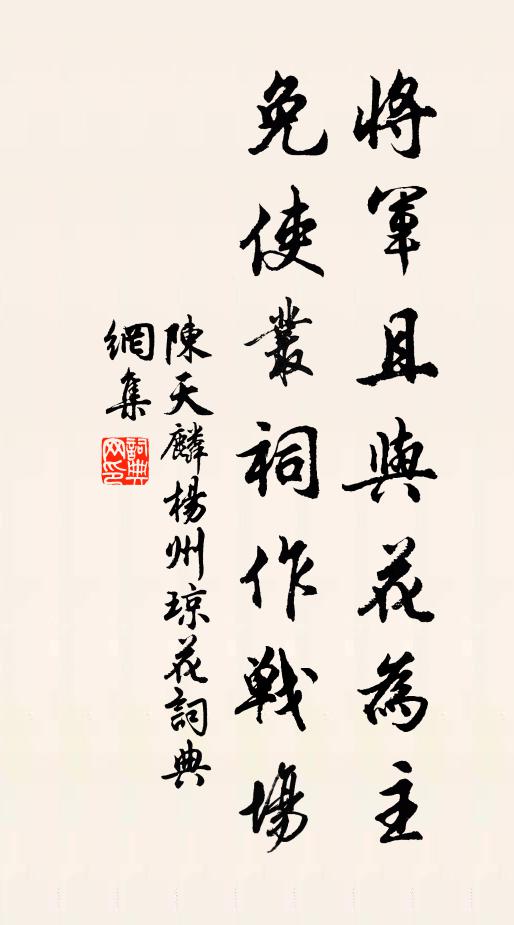 將軍且與花為主
免使叢祠作戰場
陳天麟楊州琼花詞典
網集
詞典网印